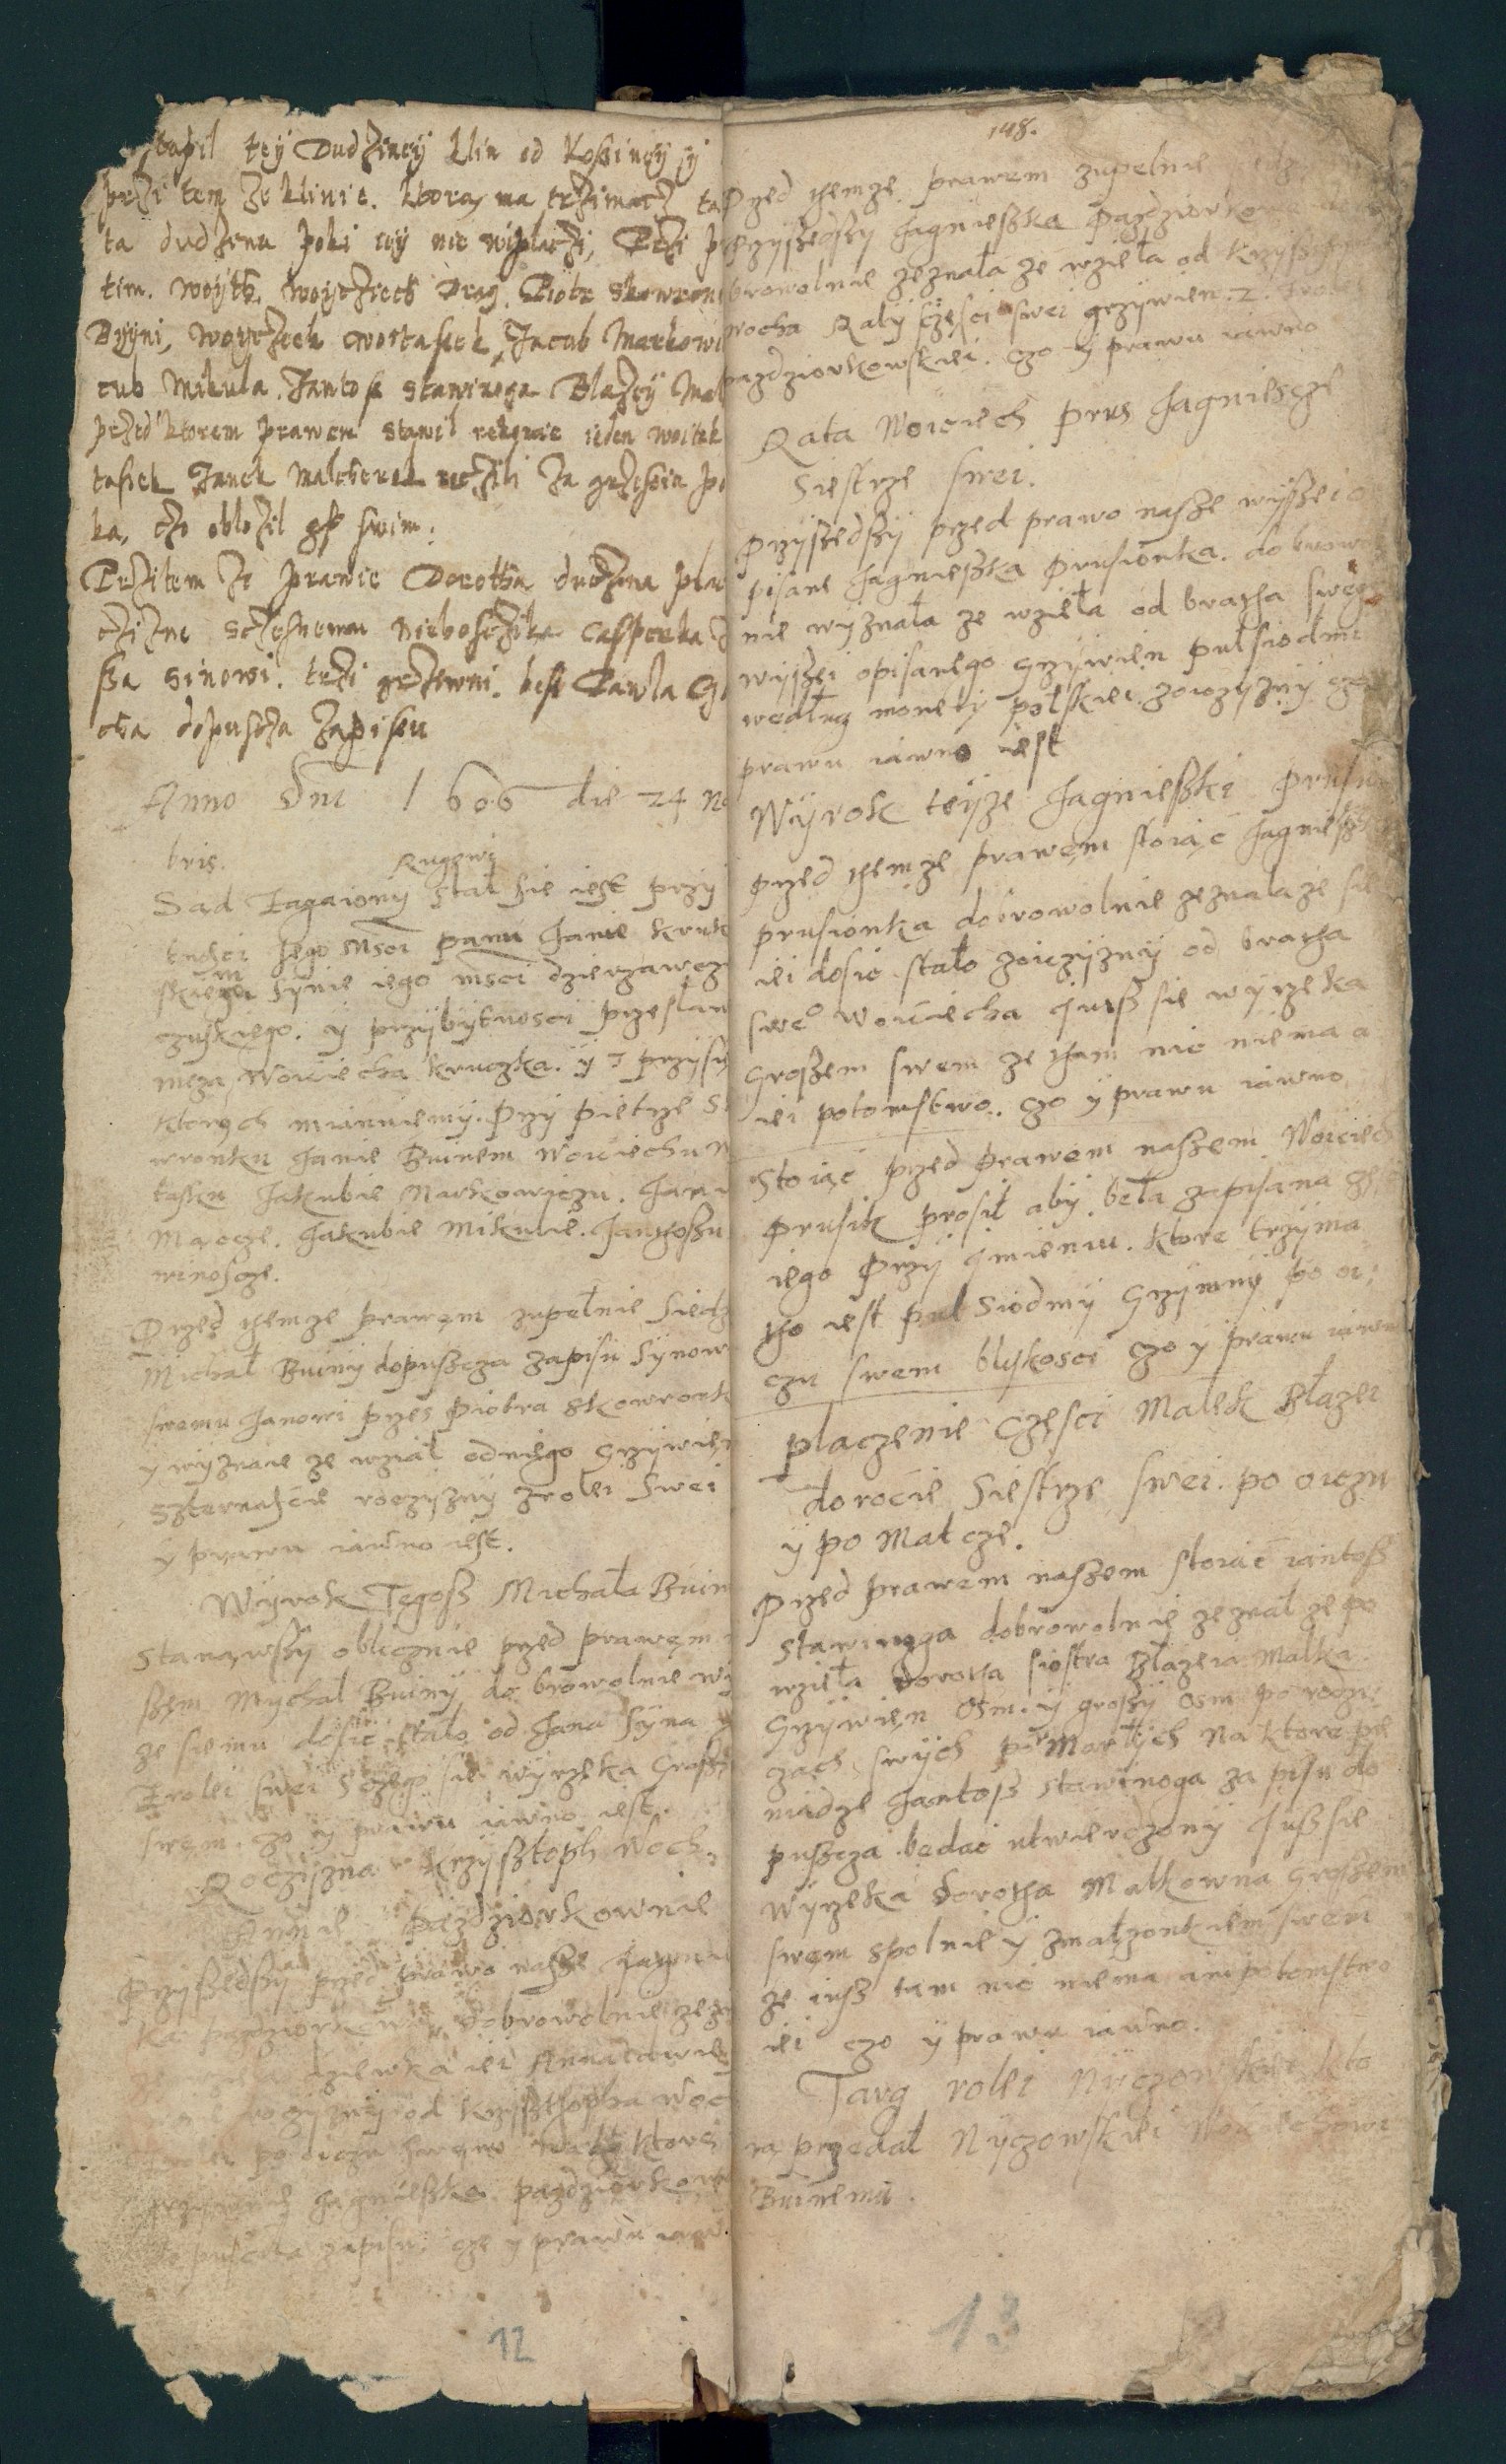 stapil tey Dudziney klin od Kossincy y
przi tem ze klinie. ktora ma trzimacz ta
ta dudzena poki iy nie wiplaczi, Przi p
tim. woyth. woycziech Drag. Piotr Skowron
Byyni, woycziech wostasiek, Jacub Markowi
cub Mikula. Jantos stawinoga Blazey Mal
przed ktorem prawem stawil rekomie ieden woitek
tasiek Janek Malcherek reczili za grzeszin po
ka, czo oblozil gr swim:
Przitem ze prawie Dorotha dudzina plac
czizne sczesnemu nieboszczika casperka
sza sinowi. trzi grziwni. bes Pawla
cha dopuscza zapisu
Anno Dni 1606 die 24 No
bris.
Rugowi
Sąd Zagaiony stał sie iest przy
tnosci Jego Msci panu Janie Kruk
skiem Synie iego msci dzierzawcz
czuskiego. y przybytnosci przesław
męza Woiciecha kruczka. y 7 przysię
ktorych mianuiemy. Przy pietrze S
wronku Janie Buinem Woiciechu W
tasku Jakubie Markowiczu. Jan
Mąocze. Jakubie Mikulie. Janthoszu
winosce.
Przed themze prawem zupełnie siedz
Michał Buiny dopuszcza zapisu Synow
swemu Janowi przes Piotra Skowronk
y wyznaie ze wział odniego Grzywien
szternascie roczyzny zrolei swei
y prawu iawno iest.
Wyrok Tegosz Michała Buin
Stanąwszy oblicznie przed prawęm
szem Mychal Buiny dobrowolnie wy
ze sie mu dosic stało od Jana Syna
Zrolei swei Sczego sie wyrzeka Grosz
swem. czo y prawu iawno iest.
Roczyzna Krzysztoph Woch.
Annie Pazdziorkownie
Przyszedszy przed prawo nasze Jagni
ka pazdziorkowa dobrowolnie zez
dziewka iei Anna
od krzysthopha Woc
po oiczu ktorei
Jagnieszka pazdziorkow
dopuscza zapisu czo y prawu iaw
12
148.
Przed themze prawem zupełnie siedz
Przyszedszy Jagnieszka Pazdziorko
browolnie zeznała ze wzieła od krzyszt
wocha Raty części swei grzywien. 2. zrolei
pazdziorkowskiei. czo y prawu iawno
Rata Woiciech Prus Jagniescze
Siestrze swei.
Przyszedszy przed prawo nasze wysszei o
pisane Jagnieszka Prusionka. dobrowol
nie wyznała ze wzieła od bratha sweg
wyszei opisanego Grzywien pułsiodmi
według monety polskiei. zoiczyzny czo
prawu iawno iest
Wyrok teyze Jagnieszki Prusi
Przed themze prawęm stoiąc Jagniesz
prusionka dobrowolnie zeznala ze sie
iei dosic stało zoiczyzny od bratha
sweo Woiciecha Jusz sie wyrzeka
Groszem swem ze tham nic niema a
iei potomstwo. czo y prawu iawno
Stoiąc przed prawem naszem Woiciech
Prusik prosił aby beła zapisana
iego Przy Jmieniu. ktore trzyma
tho iest puł Siodmy Grzywny po oi:
czu swem bliskosci czo y prawu iawn
płaczenie Częsci Malek Błazei
dorocie Siestrze swei. po oiczu
y po Matcze.
Przed prawem naszem stoiąc iantosz
Stawinoga dobrowolnie zeznal ze po
wzieła Dorotha siostra Błazeia Malka.
Grzywien Osm. y groszy osm po rodzi:
czach swych pomarłych na ktore pie
niądze Jantosz Stawinoga zapisu do
puszcza. będąc utwierdzony Jusz sie
wyrzeka Dorotha Malkowna Groszem
swem społnie y zmałzonkiem swem
ze iusz tam nic niema ani potomstwo
iei czo y prawu iawno.
Targ rolei Nyczowskiei kto
rą przedał Nyczowskiei Woiciechowi
Buinemu.
13